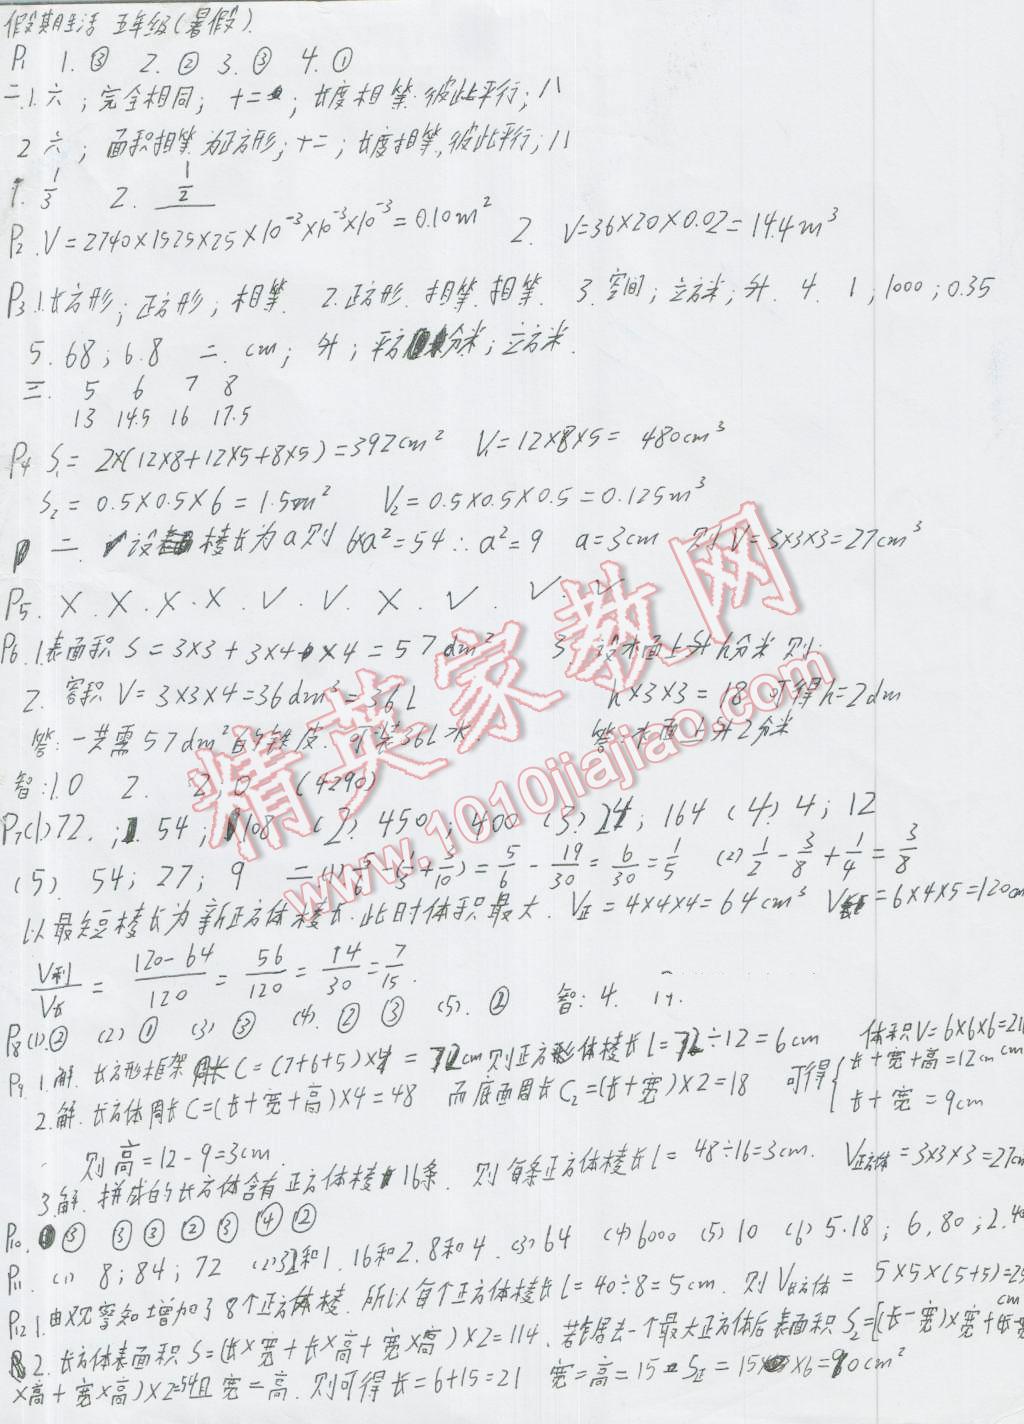 假期生活 五年级(暑假).
P1 1.③ 2.② 3.③ 4.①
二.1.六；完全相同；十二；长度相等.彼此平行；八
2 六；面积相等为正方形；十二；长度相等,彼此平行；八
1. 1/3 2. 1/2
P2.V=2740×1525×25×10⁻³×10⁻³×10⁻³=0.10m² 2. V=36×20×0.02=14.4m³
P3.1.长方形；正方形；相等. 2.正方形.相等.相等. 3.空间；立方米；升. 4. 1；1000；0.35
5.68；6.8 二. cm；升；平方分米；立方米.
三. 5 6 7 8
13 14.5 16 17.5
P4 S₁=2×(12×8+12×5+8×5)=392cm² V₁=12×8×5=480cm³
S₂=0.5×0.5×6=1.5m² V₂=0.5×0.5×0.5=0.125m³
二. 设棱长为a则6×a²=54∴a²=9 a=3cm 则V=3×3×3=27cm³
P5. ×.×.×.×.√.√.×.√.√.√
P6.1.表面积S=3×3+3×4×4=57dm² 3 设水面上升h分米则:
2.容积V=3×3×4=36dm³=36L h×3×3=18 可得h=2dm
答:一共需57dm²的铁皮.可装36L水 答:水面上升2分米
智:1.0 2. 2 0 (4290)
P7(1)72.；54；108 (2).450；400 (3)24；164 (4)4；12
(5) 54；27；9 二(1)5/6-(1/3+3/10)=5/6-19/30=6/30=1/5 (2)1/2-3/8+1/4=3/8
以最短棱长为新正方体棱长.此时体积最大.V正=4×4×4=64cm³ V长=6×4×5=120cm
V剩/V长=120-64/120=56/120=14/30=7/15.
P8(1).② (2)① (3)③ (4).②③ (5).② 智:4. 14.
P9 1.解.长方形框架周长C=(7+6+5)×4=72cm则正方形体棱长l=72÷12=6cm 体积V=6×6×6=216
2.解.长方体周长C=(长+宽+高)×4=48 而底面周长C₂=(长+宽)×2=18 可得{长+宽+高=12cm
长+宽=9cm
则高=12-9=3cm.
3.解.拼成的长方体含有正方体棱16条.则每条正方体棱长l=48÷16=3cm. V正方体=3×3×3=27cm
P10.③ ③③②③④②
P11.(1) 8；84；72 (2)32和1.16和2.8和4.(3)64 (4)6000 (5)10 (6)5.18；6.80；2.40
P12 1.由观察知增加了8个正方体棱.所以每个正方体棱长l=40÷8=5cm.则V长方体=5×5×(5+5)=25
2.长方体表面积S=(长×宽+长×高+宽×高)×2=114.若切去一个最大正方体后表面积S₂=[(长-宽)×宽+(长-宽)
×高+宽×高)×2=54且宽=高.则可得长=6+15=21 宽=高=15 S正=15×6=90cm²
精英家教网
www.1010jiajiao.com